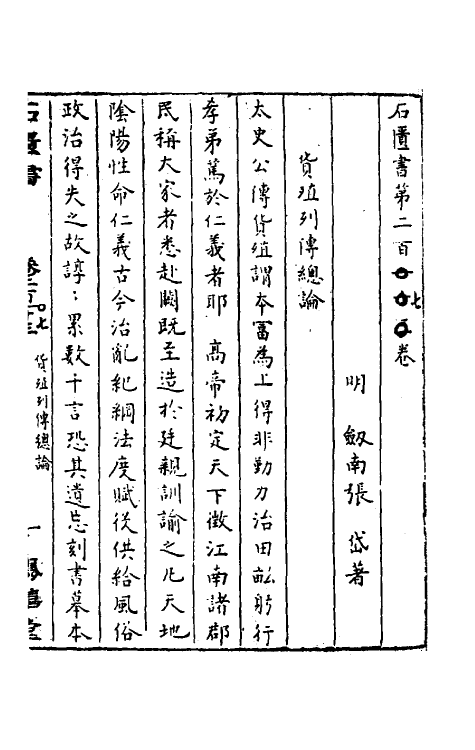 石匱書第二百〇七卷
明 劔南張 岱著
貨殖列傳總論
太史公傳貨殖謂本富為上得非勤力治田畝躬行
孝弟篤於仁義者耶 高帝初定天下徵江南諸郡
民稱大家者悉赴闕既至造於廷親訓諭之凡天地
陰陽性命仁義古今治亂紀綱法度賦役供給風俗
政治得失之故諄：累數千言恐其遺忘刻書摹本
石匱書
貨殖列傳總論
一
鳳嬉堂